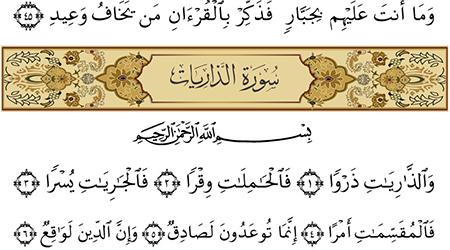 وَمَا أَنتَ عَلَيْهِم بِجَبَّارٍ فَذَكِّرْ بِالْقُرْءَانِ مَن يَخَافُ وَعِيدِ ﴿٤٥﴾
سُورَةُ الذَّارِيَاتِ
بِسْمِ اللَّهِ الرَّحْمَٰنِ الرَّحِيمِ
وَالذَّارِيَاتِ ذَرْوًا ﴿١﴾ فَالْحَامِلَاتِ وِقْرًا ﴿٢﴾ فَالْجَارِيَاتِ يُسْرًا ﴿٣﴾
فَالْمُقَسِّمَاتِ أَمْرًا ﴿٤﴾ إِنَّمَا تُوعَدُونَ لَصَادِقٌ ﴿٥﴾ وَإِنَّ الدِّينَ لَوَاقِعٌ ﴿٦﴾